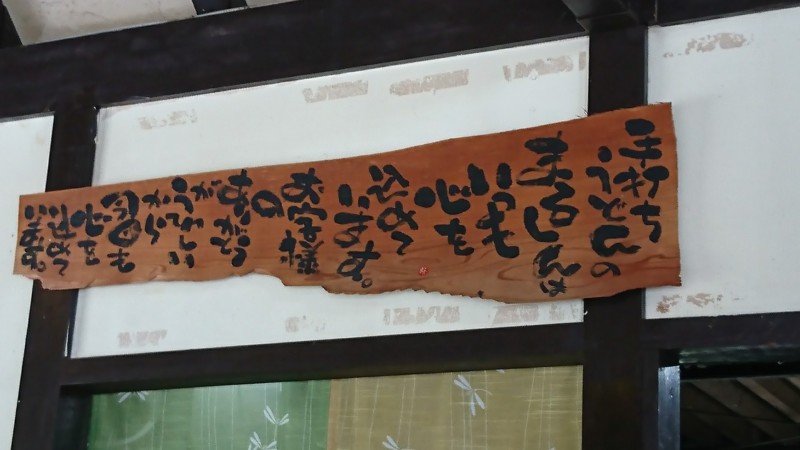 手打ち
うどんの
まるしんは
いつも
心を
込めて
います。
お客様
の
ありがとう
が
うれしい
から
今日も
心を
込めて
います。